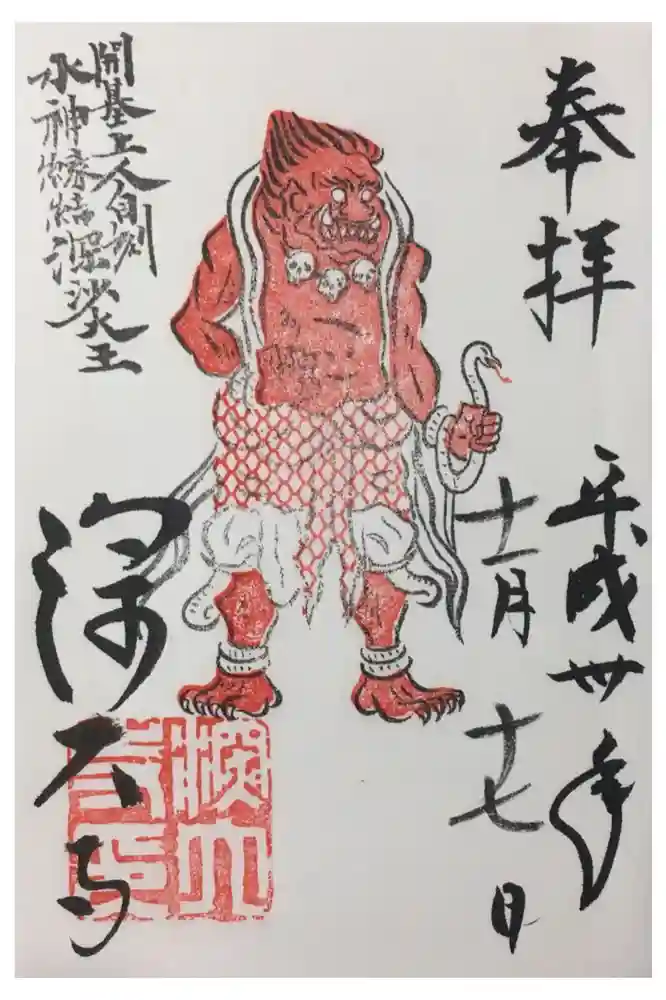 奉拝
平成卅年
十一月十七日
開基上人自刻
水神 縁結 深沙大王
深大寺